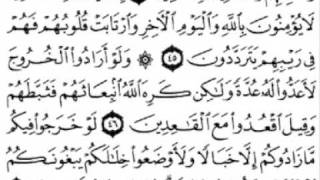 لَا يُؤْمِنُونَ بِٱللَّهِ وَٱلْيَوْمِ ٱلْـَٔاخِرِ وَٱرْتَابَتْ قُلُوبُهُمْ فَهُمْ
فِى رَيْبِهِمْ يَتَرَدَّدُونَ ۝٤٥ ۞ وَلَوْ أَرَادُوا۟ ٱلْخُرُوجَ
لَأَعَدُّوا۟ لَهُۥ عُدَّةً وَلَٰكِن كَرِهَ ٱللَّهُ ٱنۢبِعَاثَهُمْ فَثَبَّطَهُمْ
وَقِيلَ ٱقْعُدُوا۟ مَعَ ٱلْقَٰعِدِينَ ۝٤٦ لَوْ خَرَجُوا۟ فِيكُم
مَّا زَادُوكُمْ إِلَّا خَبَالًا وَلَأَوْضَعُوا۟ خِلَٰلَكُمْ يَبْغُونَكُمُ